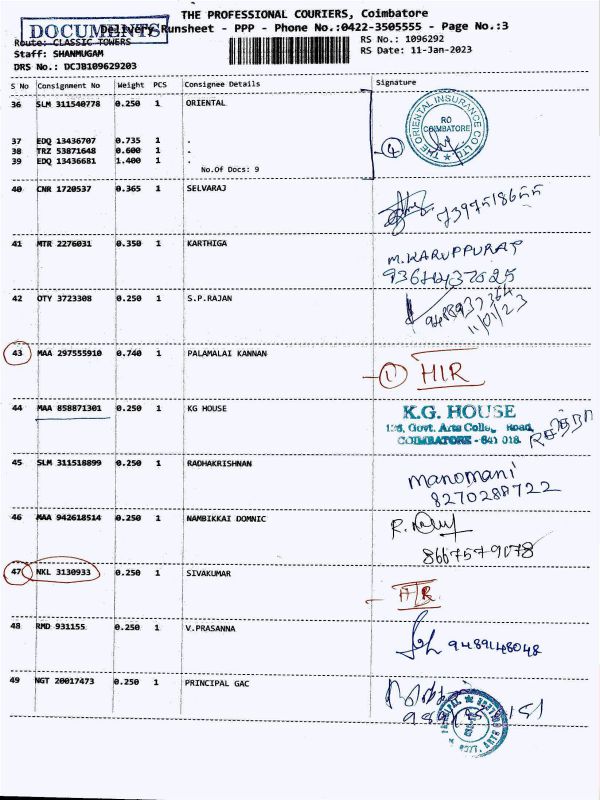 THE PROFESSIONAL COURIERS, Coimbatore
DOCUMENTS
Delivery Runsheet - PPP - Phone No.:0422-3505555 - Page No.:3
Route: CLASSIC TOWERS
RS No.: 1096292
Staff: SHANMUGAM
RS Date: 11-Jan-2023
DRS No.: DCJB109629203
S No Consignment No Weight PCS Consignee Details Signature
36 SLM 311540778 0.250 1 ORIENTAL
THE ORIENTAL INSURANCE CO LTD
RO
COIMBATORE
37 EDQ 13436707 0.735 1 .
38 TRZ 53871648 0.600 1 .
4
39 EDQ 13436681 1.400 1 .
No.Of Docs: 9
40 CNR 1720537 0.365 1 SELVARAJ
41 MTR 2276031 0.350 1 KARTHIGA
M.KARUPPURAJ
42 OTY 3723308 0.250 1 S.P.RAJAN
11/01/23
43 MAA 297555910 0.740 1 PALAMALAI KANNAN
1 HIR
44 MAA 858871301 0.250 1 KG HOUSE
K.G. HOUSE
Govt. Arts College Road,
COIMBATORE - 641 018.
45 SLM 311518899 0.250 1 RADHAKRISHNAN
manomani
8270288722
46 MAA 942618514 0.250 1 NAMBIKKAI DOMNIC
8667579078
47 NKL 3130933 0.250 1 SIVAKUMAR
48 RMD 931155 0.250 1 V.PRASANNA
9489148048
49 NGT 20017473 0.250 1 PRINCIPAL GAC